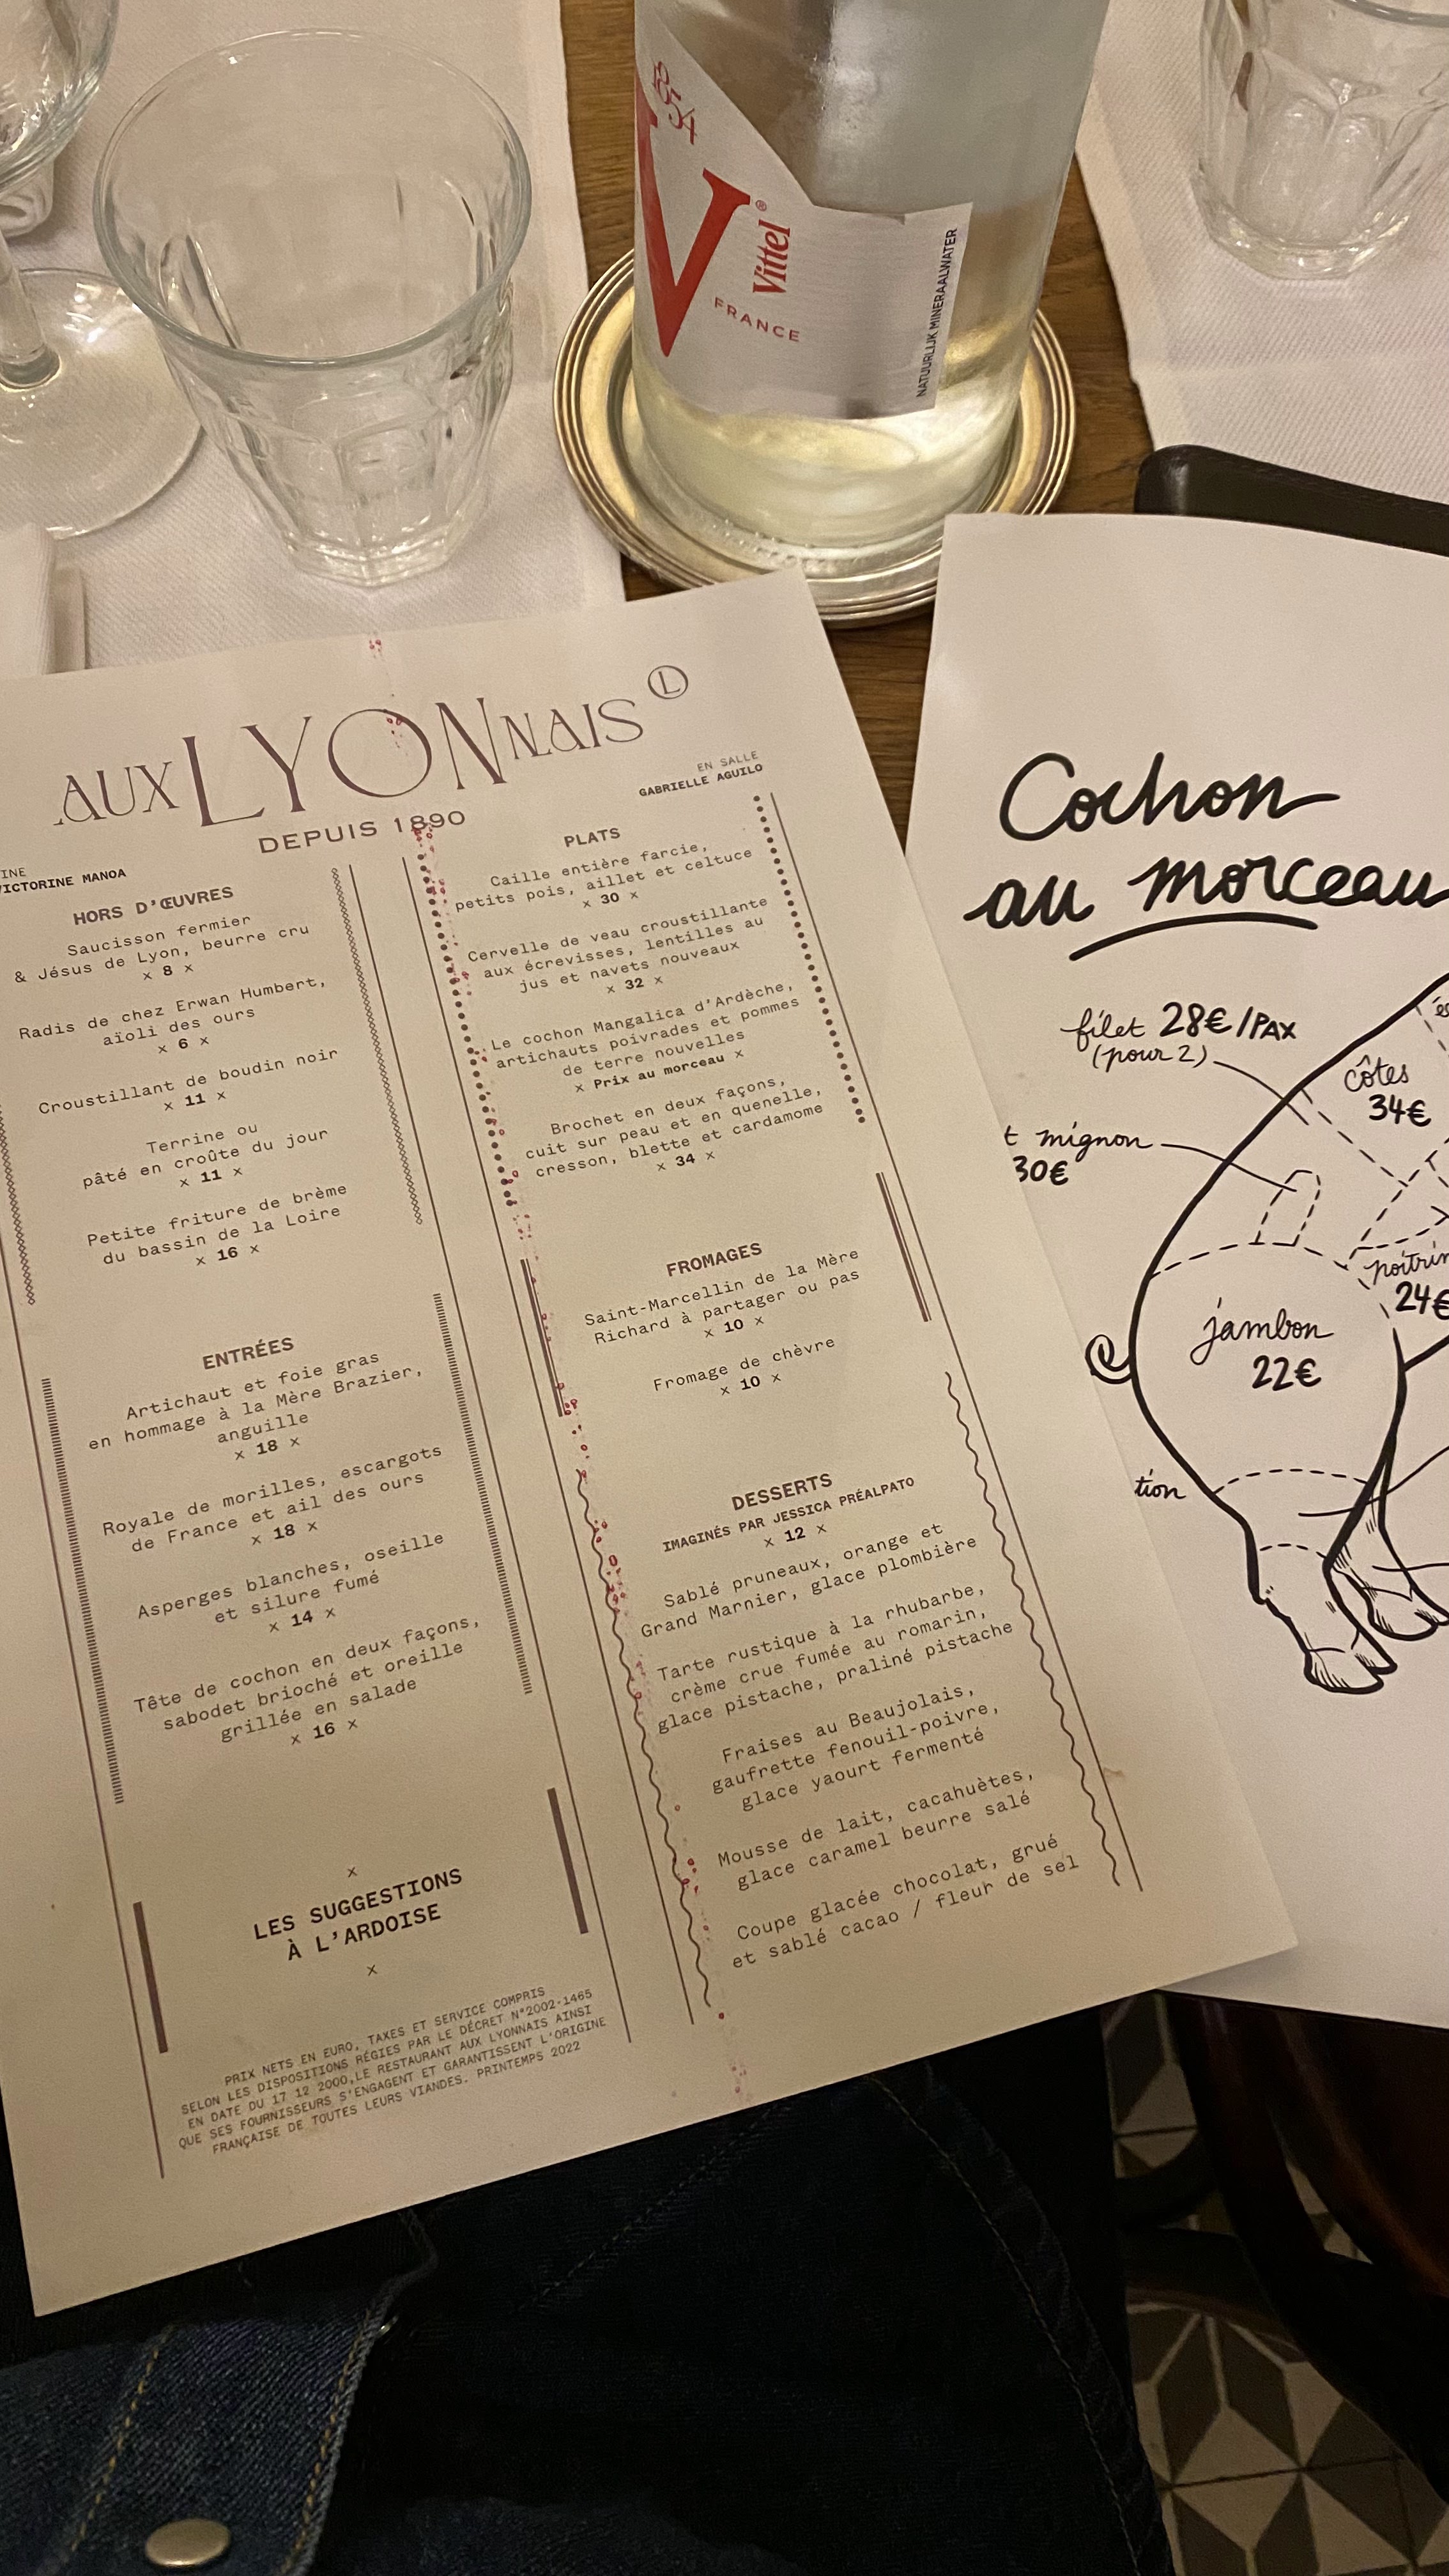 Vittel®
FRANCE
NATUURLIJK MINERAALWATER
AUX LYONNAIS
L
DEPUIS 1890
VICTORINE MANOA
EN SALLE
GABRIELLE AGUILO
HORS D'ŒUVRES
Saucisson fermier
& Jésus de Lyon, beurre cru
x 8 x
Radis de chez Erwan Humbert,
aïoli des ours
x 6 x
Croustillant de boudin noir
x 11 x
Terrine ou
pâté en croûte du jour
x 11 x
Petite friture de brème
du bassin de la Loire
x 16 x
ENTRÉES
Artichaut et foie gras
en hommage à la Mère Brazier,
anguille
x 18 x
Royale de morilles, escargots
de France et ail des ours
x 18 x
Asperges blanches, oseille
et silure fumé
x 14 x
Tête de cochon en deux façons,
sabodet brioché et oreille
grillée en salade
x 16 x
x
LES SUGGESTIONS
À L'ARDOISE
x
PRIX NETS EN EURO, TAXES ET SERVICE COMPRIS
SELON LES DISPOSITIONS RÉGIES PAR LE DÉCRET N°2002-1465
EN DATE DU 17 12 2000,LE RESTAURANT AUX LYONNAIS AINSI
QUE SES FOURNISSEURS S'ENGAGENT ET GARANTISSENT L'ORIGINE
FRANÇAISE DE TOUTES LEURS VIANDES. PRINTEMPS 2022
PLATS
Caille entière farcie,
petits pois, aillet et celtuce
x 30 x
Cervelle de veau croustillante
aux écrevisses, lentilles au
jus et navets nouveaux
x 32 x
Le cochon Mangalica d'Ardèche,
artichauts poivrades et pommes
de terre nouvelles
x Prix au morceau x
Brochet en deux façons,
cuit sur peau et en quenelle,
cresson, blette et cardamome
x 34 x
FROMAGES
Saint-Marcellin de la Mère
Richard à partager ou pas
x 10 x
Fromage de chèvre
x 10 x
DESSERTS
IMAGINÉS PAR JESSICA PRÉALPATO
x 12 x
Sablé pruneaux, orange et
Grand Marnier, glace plombière
Tarte rustique à la rhubarbe,
crème crue fumée au romarin,
glace pistache, praliné pistache
Fraises au Beaujolais,
gaufrette fenouil-poivre,
glace yaourt fermenté
Mousse de lait, cacahuètes,
glace caramel beurre salé
Coupe glacée chocolat, grué
et sablé cacao / fleur de sel
Cochon
au morceau
filet 28€/PAX
(pour 2)
côtes
34€
t mignon
30€
poitrin
24€
jambon
22€
tion